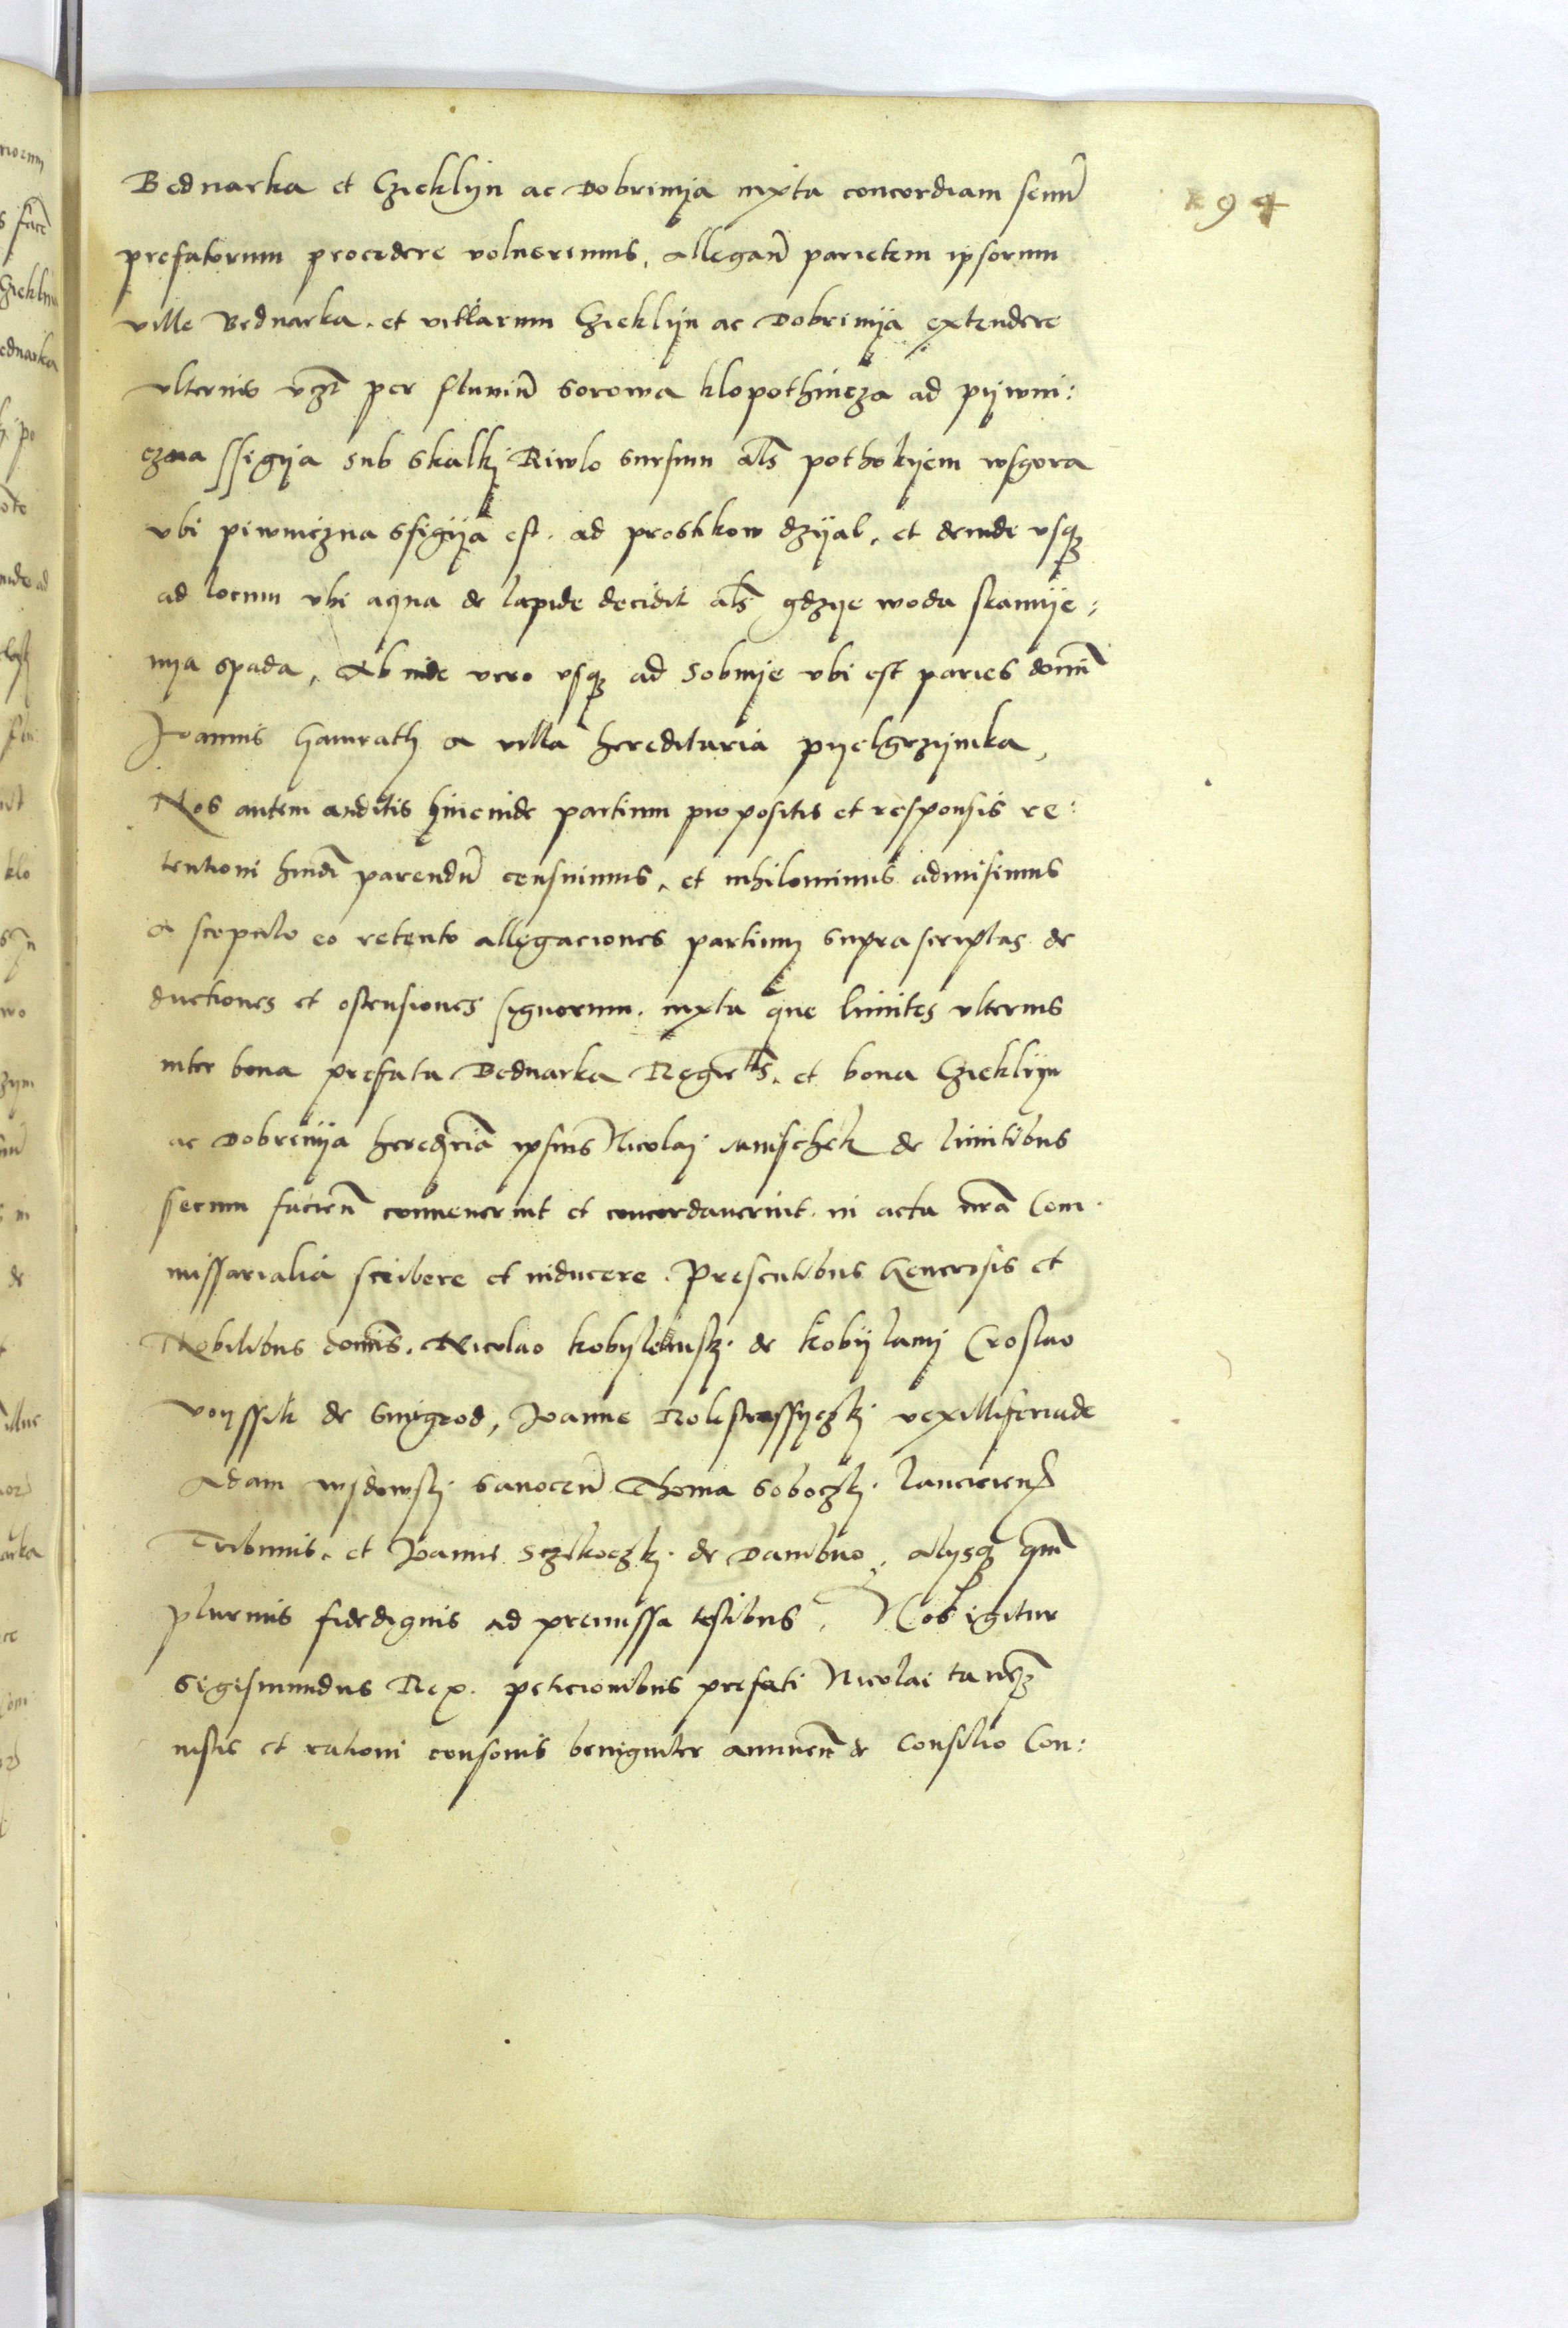 94
Bednarka et Czieklijn ac Dobrimija iuxta concordiam seniu͂
prefatorum procedere voluerimus, allegan͂ parietem ipsorum
ville Bednarka. et villarum Czieklijn ac Dobrimija extendere
vlterius vcz͂t per fluuiu͂ Sorowa klopothincza ad pijwni:
czna ssigija sub Skalkj Riwlo sursum al͂s pothokijem wsgora
vbi piwniczna Ssigija est. ad prostkow dzijal, et deinde vsq₃
ad locum vbi aqua de lapide decidit al͂s gdzije woda skamije:
nija spada, Ab inde vero vsq₃ ad Sobnije vbi est paries domin͂
Joannis Hamrath a villa hereditaria pijelgrzijmka,
Nos autem auditis hincinde partium propositis et responsis re:
tentioni parendu͂ censuimus, et nihilominus admisimus
a scopulo eo retento allegaciones partium suprascriptas de
ductiones et ostensiones signorum. iuxta que limites vlterius
inter bona prefata Bednarka Regie. et bona Czieklijn
ac Dobrimija ipsius Nicolaj de limitibus
secum facien͂ conuenerint et concordauerint. in acta nr͂a Com:
missarialia scribere et inducere. Presentibus Generosis et
Nobilibus domi͂s. Nicolao kobijlenskj. de kobijlanij Croslao
voijssik de Smigrod, Joanne vexillifer
Adam Sanocen͂ Thoma Soboczkj. lancicien͂
Tribunis. et Joannis Sczekoczkj. de Dambno, alijsq₃ qm͂
plurimis fidedignis ad premissa testibus, Nos igitur
Sigismundus Rex. peticionibus prefati Nicolai tanq₃
iustis et rationi consonis benigniter annuen͂ de Consilio Con: